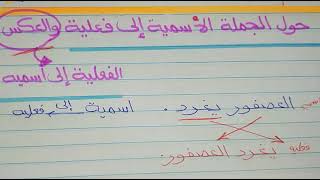 حول الجملة الأسمية إلى فعلية والعكس
الفعلية إلى أسميه
العصفور يغرد. اسمية إلى فعليه
فعليه يغرد العصفور.